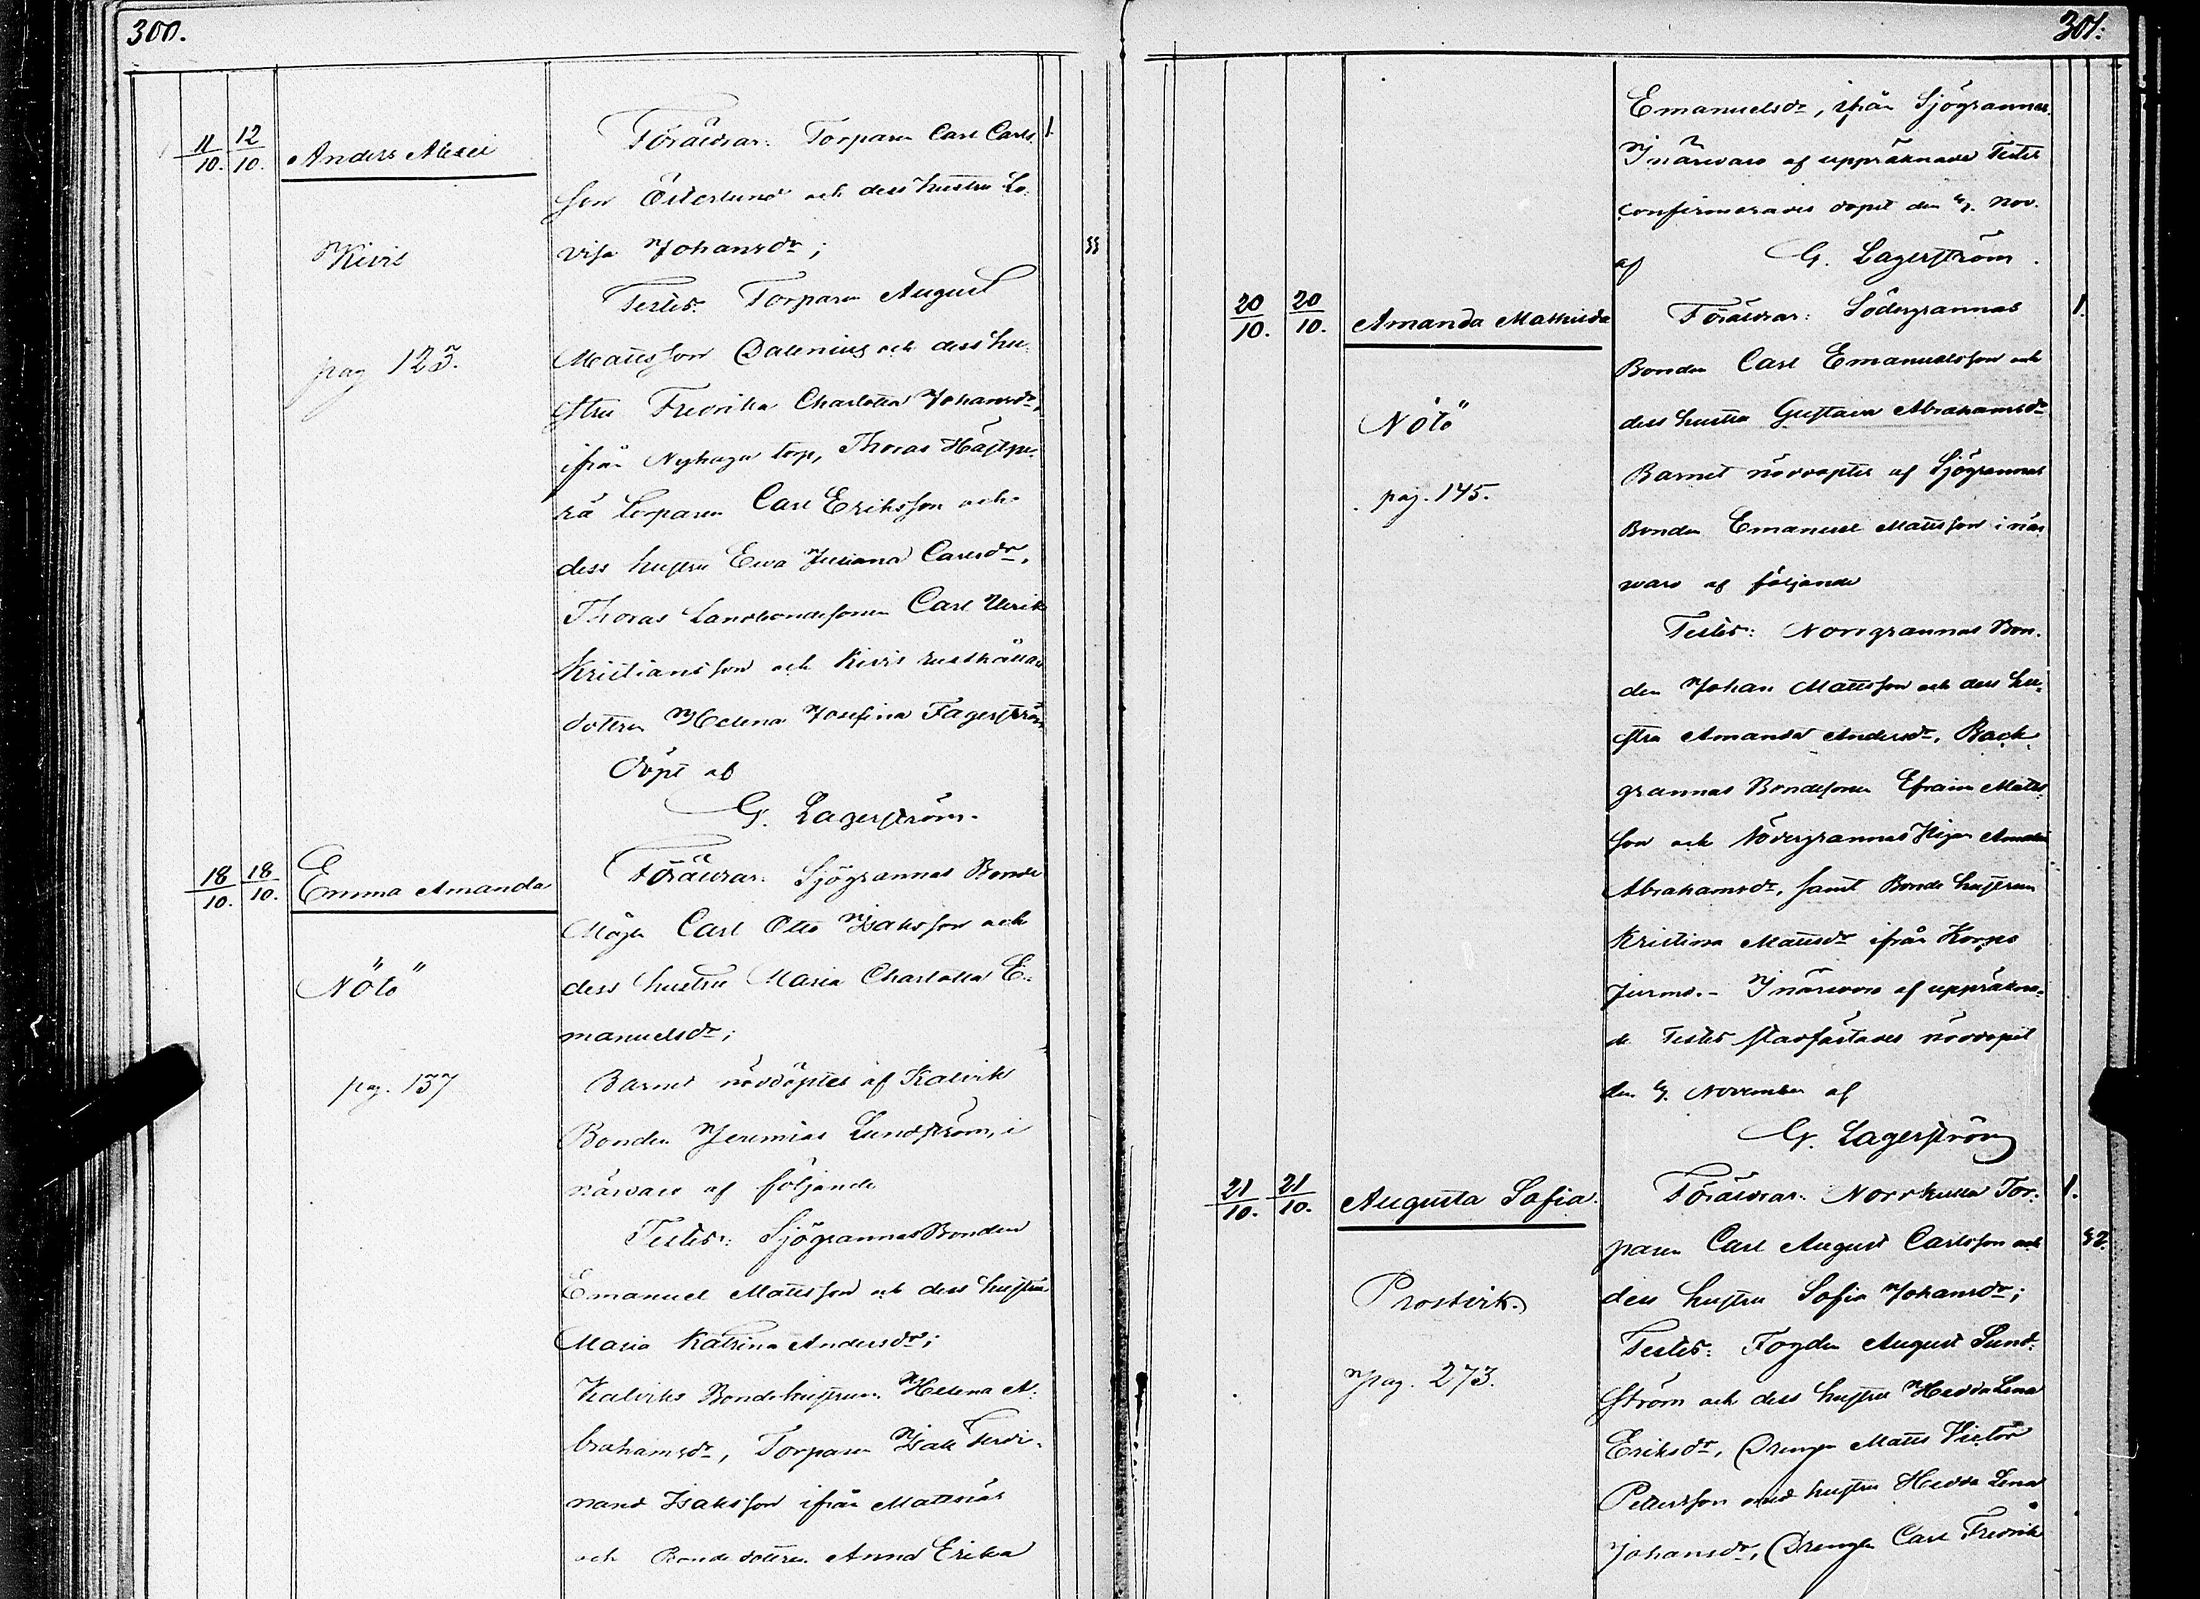 300.
11/10. 12/10. Anders Alexei
Kivis
pag 123.
Föräldrar: Torparen Carl Carls- 1.
son Österlund och dess hustru Lo-
visa Johansdr;
Testes: Torparen August
Mattsson Dalenius och dess hu-
stru Fredrika Charlotta Johansdr,
ifrån Nyhaga torp, Thoras
torparen Carl Eriksson och
dess hustru Ewa Juliana Carlsdr,
Thoras Landbondesonen Carl Ulrik
Kristiansson och Kivis rusthållare
dottren Helena Josefina Fagerström
Döpt af
G. Lagerström.
18/10. 18/10. Emma Amanda
Nötö
pag. 137
Föräldrar: Sjögrannas Bonde
Mågen Carl Otto Isaksson och
dess hustru Maria Charlotta E-
manuelsdr;
Barnet nöddöptes af Kalviks
Bonden Jeremias Lundström, i
närvaro af följande
Testes: Sjögrannas Bonden
Emanuel Mattsson och dess hustru
Maria Katrina Andersdr;
Kalviks Bondehustrun Helena A-
brahamsdr, Torparen Isak Ferdi-
nand Isaksson ifrån Mattnäs
och Bondedottren Anna Erika
301.
Emanuelsdr, ifrån Sjögrannas.
I närvaro af uppräknade Testes
confirmerades dopet den Nov.
af G. Lagerström.
20/10. 20/10. Amanda Mathilda
Nötö
pag. 145.
Föräldrar: Södergrannas 1.
Bonden Carl Emanuelsson och
dess hustru Gustava Abrahamsdr
Barnet nöddöptes af Sjögrannas
Bonden Emanuel Mattsson i när-
varo af följande
Testes: Norrgrannas Bon-
den Johan Mattsson och dess hu-
stru Amanda Andersdr, Back-
grannas Bondesonen Efraim Matts-
son och Södergrannas Pigan Amanda
Abrahamsdr, samt Bonde hustrun
Kristina Mattsdr ifrån Korpo
Jurmo. - I närvaro af uppräkna-
de Testes stadfästades nöddopet
den November af
G. Lagerström
21/10. 21/10. Augusta Sofia.
Prostvik.
pag. 273.
Föräldrar: Norrkulla Tor- 1.
paren Carl August Carlsson och
dess hustru Sofia Johansdr;
Testes: Fogden August Lund-
ström och dess hustru Hedda Lena
Eriksdr, Drengen Matts Victor
Pettersson med hustru Hedda Lena
Johansdr, Drengen Carl Fredrik